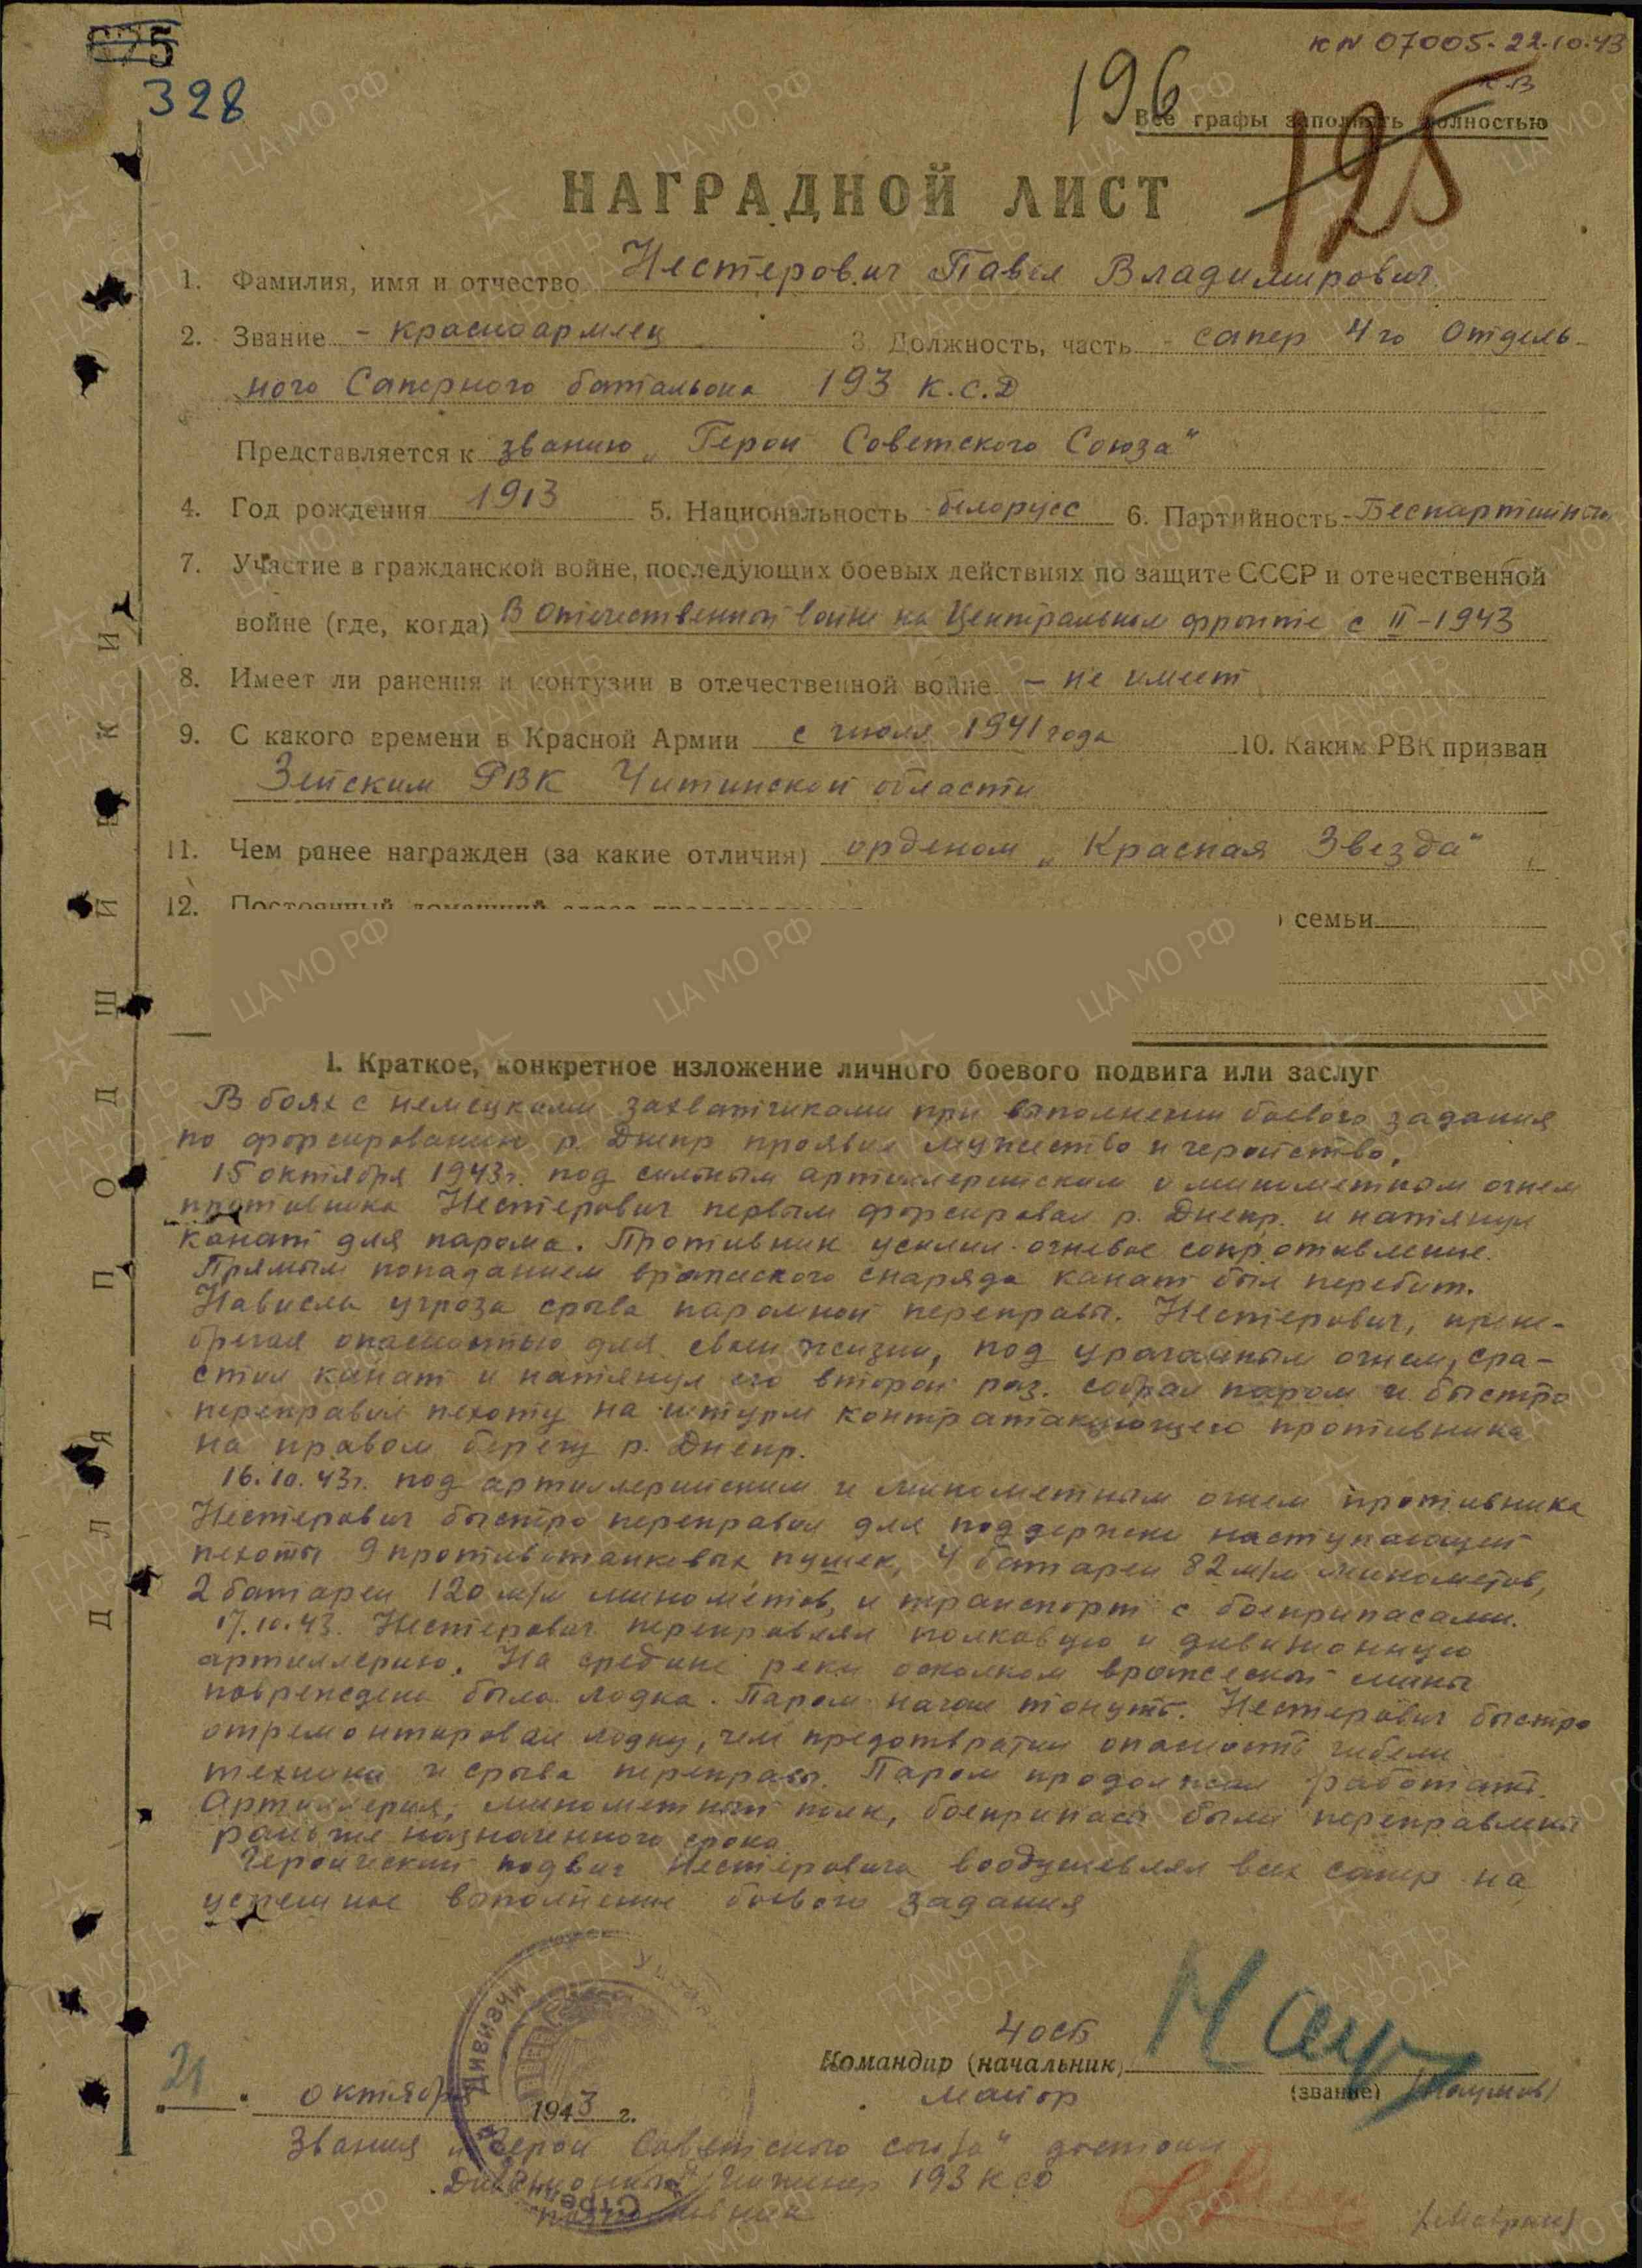 5
328
кN 07005. 22.10.43
196
125
Все графы заполнять полностью
НАГРАДНОЙ ЛИСТ
1. Фамилия, имя и отчество Нестерович Павел Владимирович
2. Звание - красноармеец 3. Должность, часть - сапер 4го Отдель-
ного Саперного батальона 193 К.С.Д
Представляется к званию „Герой Советского Союза"
4. Год рождения 1913 5. Национальность белорусс 6. Партийность - Беспартийный
7. Участие в гражданской войне, последующих боевых действиях по защите СССР и отечественной
войне (где, когда) В Отечественной войне на Центральном фронте с II-1943
8. Имеет ли ранения и контузии в отечественной войне - не имеет
9. С какого времени в Красной Армии с июля 1941 года 10. Каким РВК призван
Зейским РВК Читинской области
11. Чем ранее награжден (за какие отличия) орденом „Красная Звезда"
12. Постоянный домашний адрес семьи
1. Краткое, конкретное изложение личного боевого подвига или заслуг
В боях с немецкими захватчиками при выполнении боевого задания
по форсированию р. Днепр проявил мужество и геройство.
15 октября 1943г. под сильным артиллерийским и минометным огнем
противника Нестерович первым форсировал р. Днепр. и натянул
канат для парома. Противник усилил огневое сопротивление.
Прямым попаданием вражеского снаряда канат был перебит.
Нависла угроза срыва паромной переправы. Нестерович, прене-
брегая опасностью для своей жизни, под ураганным огнем, сра-
стил канат и натянул его второй раз. собрал паром и быстро
переправил пехоту на штурм контратакующего противника
на правом берегу р. Днепр.
16.10.43г. под артиллерийским и минометным огнем противника
Нестерович быстро переправил для поддержки наступающей
пехоты 9 противотанковых пушек, 4 батареи 82 м/м минометов,
2 батареи 120 м/м минометов, и транспорт с боеприпасами.
17.10.43. Нестерович переправлял полковую и дивизионную
артиллерию. На средине реки осколком вражеской мины
повреждена была лодка. Паром начал тонуть. Нестерович быстро
отремонтировал лодку, чем предотвратил опасность гибели
техники и срыва переправы. Паром продолжал работать.
Артиллерия, минометный полк, боеприпасы были переправлены
раньше назначенного срока.
Героический подвиг Нестеровича воодушевлял всех сапер на
успешное выполнение боевого задания
4 осб
Командир (начальник)
майор (звание) (Наумов)
21. октября 1943 г.
Звания „Герой Советского союза" достоин
Дивизионный Инженер 193 КСД
подполковник
ДЛЯ ПОДШИВКИ
ДИВИЗИИ
ЦА МО РФ
ПАМЯТЬ НАРОДА